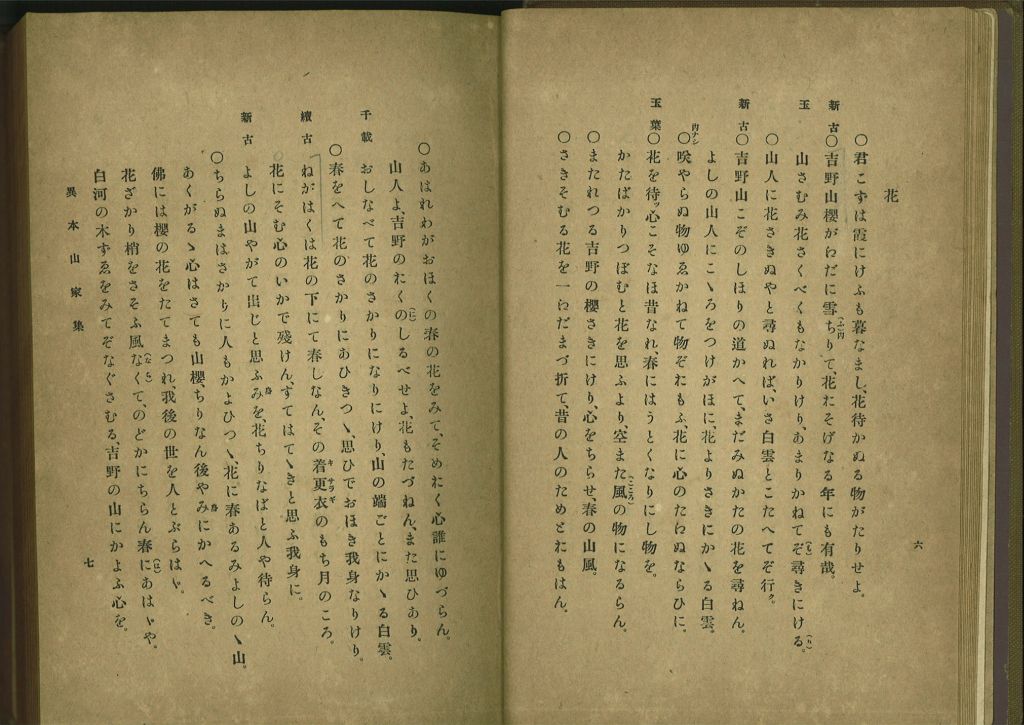 六
花
〇君こずは霞にけふも暮なまし、花待かぬる物がたりせよ。
新古〇吉野山櫻がえだに雪ちりて、花おそげなる年にも有哉。
玉 山さむみ花さくべくもなかりけり、あまりかねてぞ尋きにける。
〇山人に花さきぬやと尋ぬれば、いさ白雲とこたへてぞ行ク。
新古〇吉野山こぞのしほりの道かへて、まだみぬかたの花を尋ねん。
よしの山人にこゝろをつけがほに、花よりさきにかゝる白雲。
〇咲やらぬ物ゆゑかねて物ぞおもふ、花に心のたえぬならひに。
玉葉〇花を待ッ心こそなほ昔なれ、春にはうとくなりにし物を。
かたばかりつぼむと花を思ふより、空また風の物になるらん。
〇またれつる吉野の櫻さきにけり、心をちらせ、春の山風。
〇さきそむる花を一えだまづ折て、昔の人のためとおもはん。
〇あはれわがおほくの春の花をみて、そめおく心誰にゆづらん。
山人よ、吉野のおくのしるべせよ、花もたづねん、また思ひあり。
千載 おしなべて花のさかりになりにけり、山の端ごとにかゝる白雲。
〇春をへて花のさかりにあひきつゝ、思ひでおほき我身なりけり。
續古 ねがはくは花の下にて春しなん、その着更衣のもち月のころ。
花にそむ心のいかで殘けん、すてはてゝきと思ふ我身に。
新古 よしの山やがて出じと思ふみを、花ちりなばと人や待らん。
〇ちらぬまはさかりに人もかよひつゝ、花に春あるみよしのゝ山。
あくがるゝ心はさても山櫻、ちりなん後やみにかへるべき。
佛には櫻の花をたてまつれ、我後の世を人とぶらはゞ。
花ざかり梢をさそふ風なくて、のどかにちらん春にあはゞや。
白河の木ずゑをみてぞなぐさむる、吉野の山にかよふ心を。
異本山家集
七